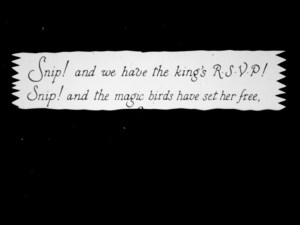 Snip! and we have the king's R·S·V·P!
Snip! and the magic birds have set her free,